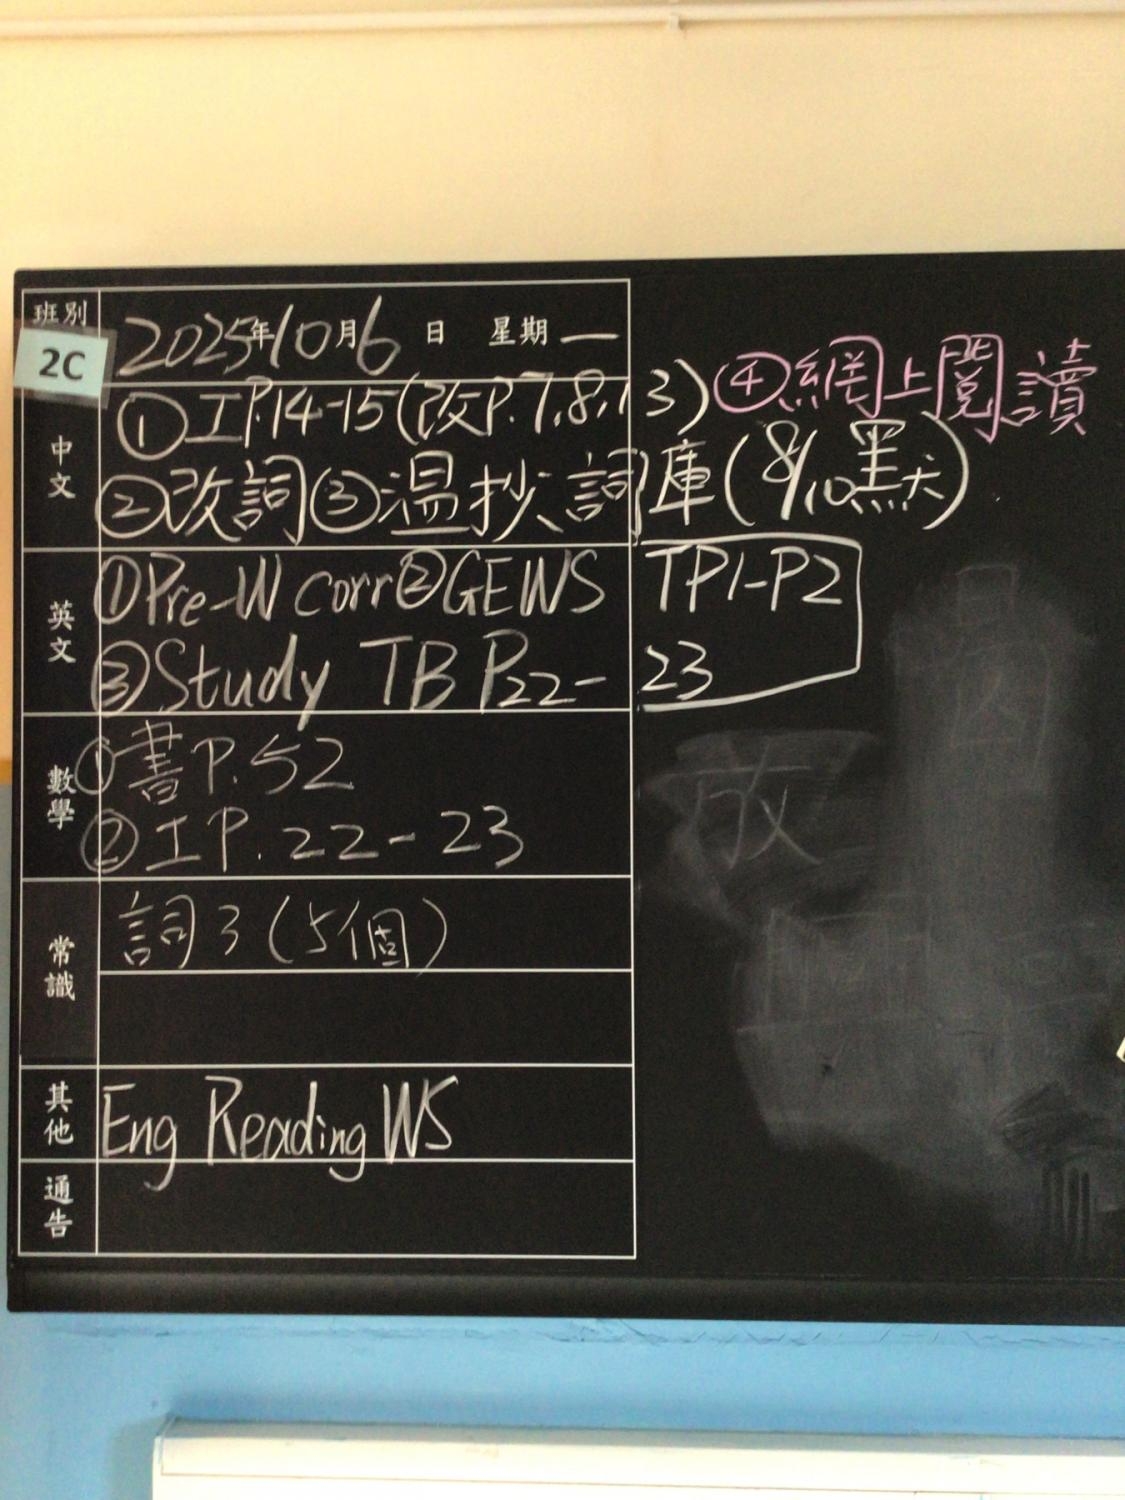 班別
2C
2025年10月6日 星期一
中文
①工P.14-15(改P.7,8,13) ④網上閱讀
②改詞③溫抄詞庫(8/10默)
英文
①Pre-W corr②GEWS TP1-P2
③Study TB P22-23
數學
①書P.52
②工P.22-23
常識
詞3(5個)
其他
Eng Reading WS
通告